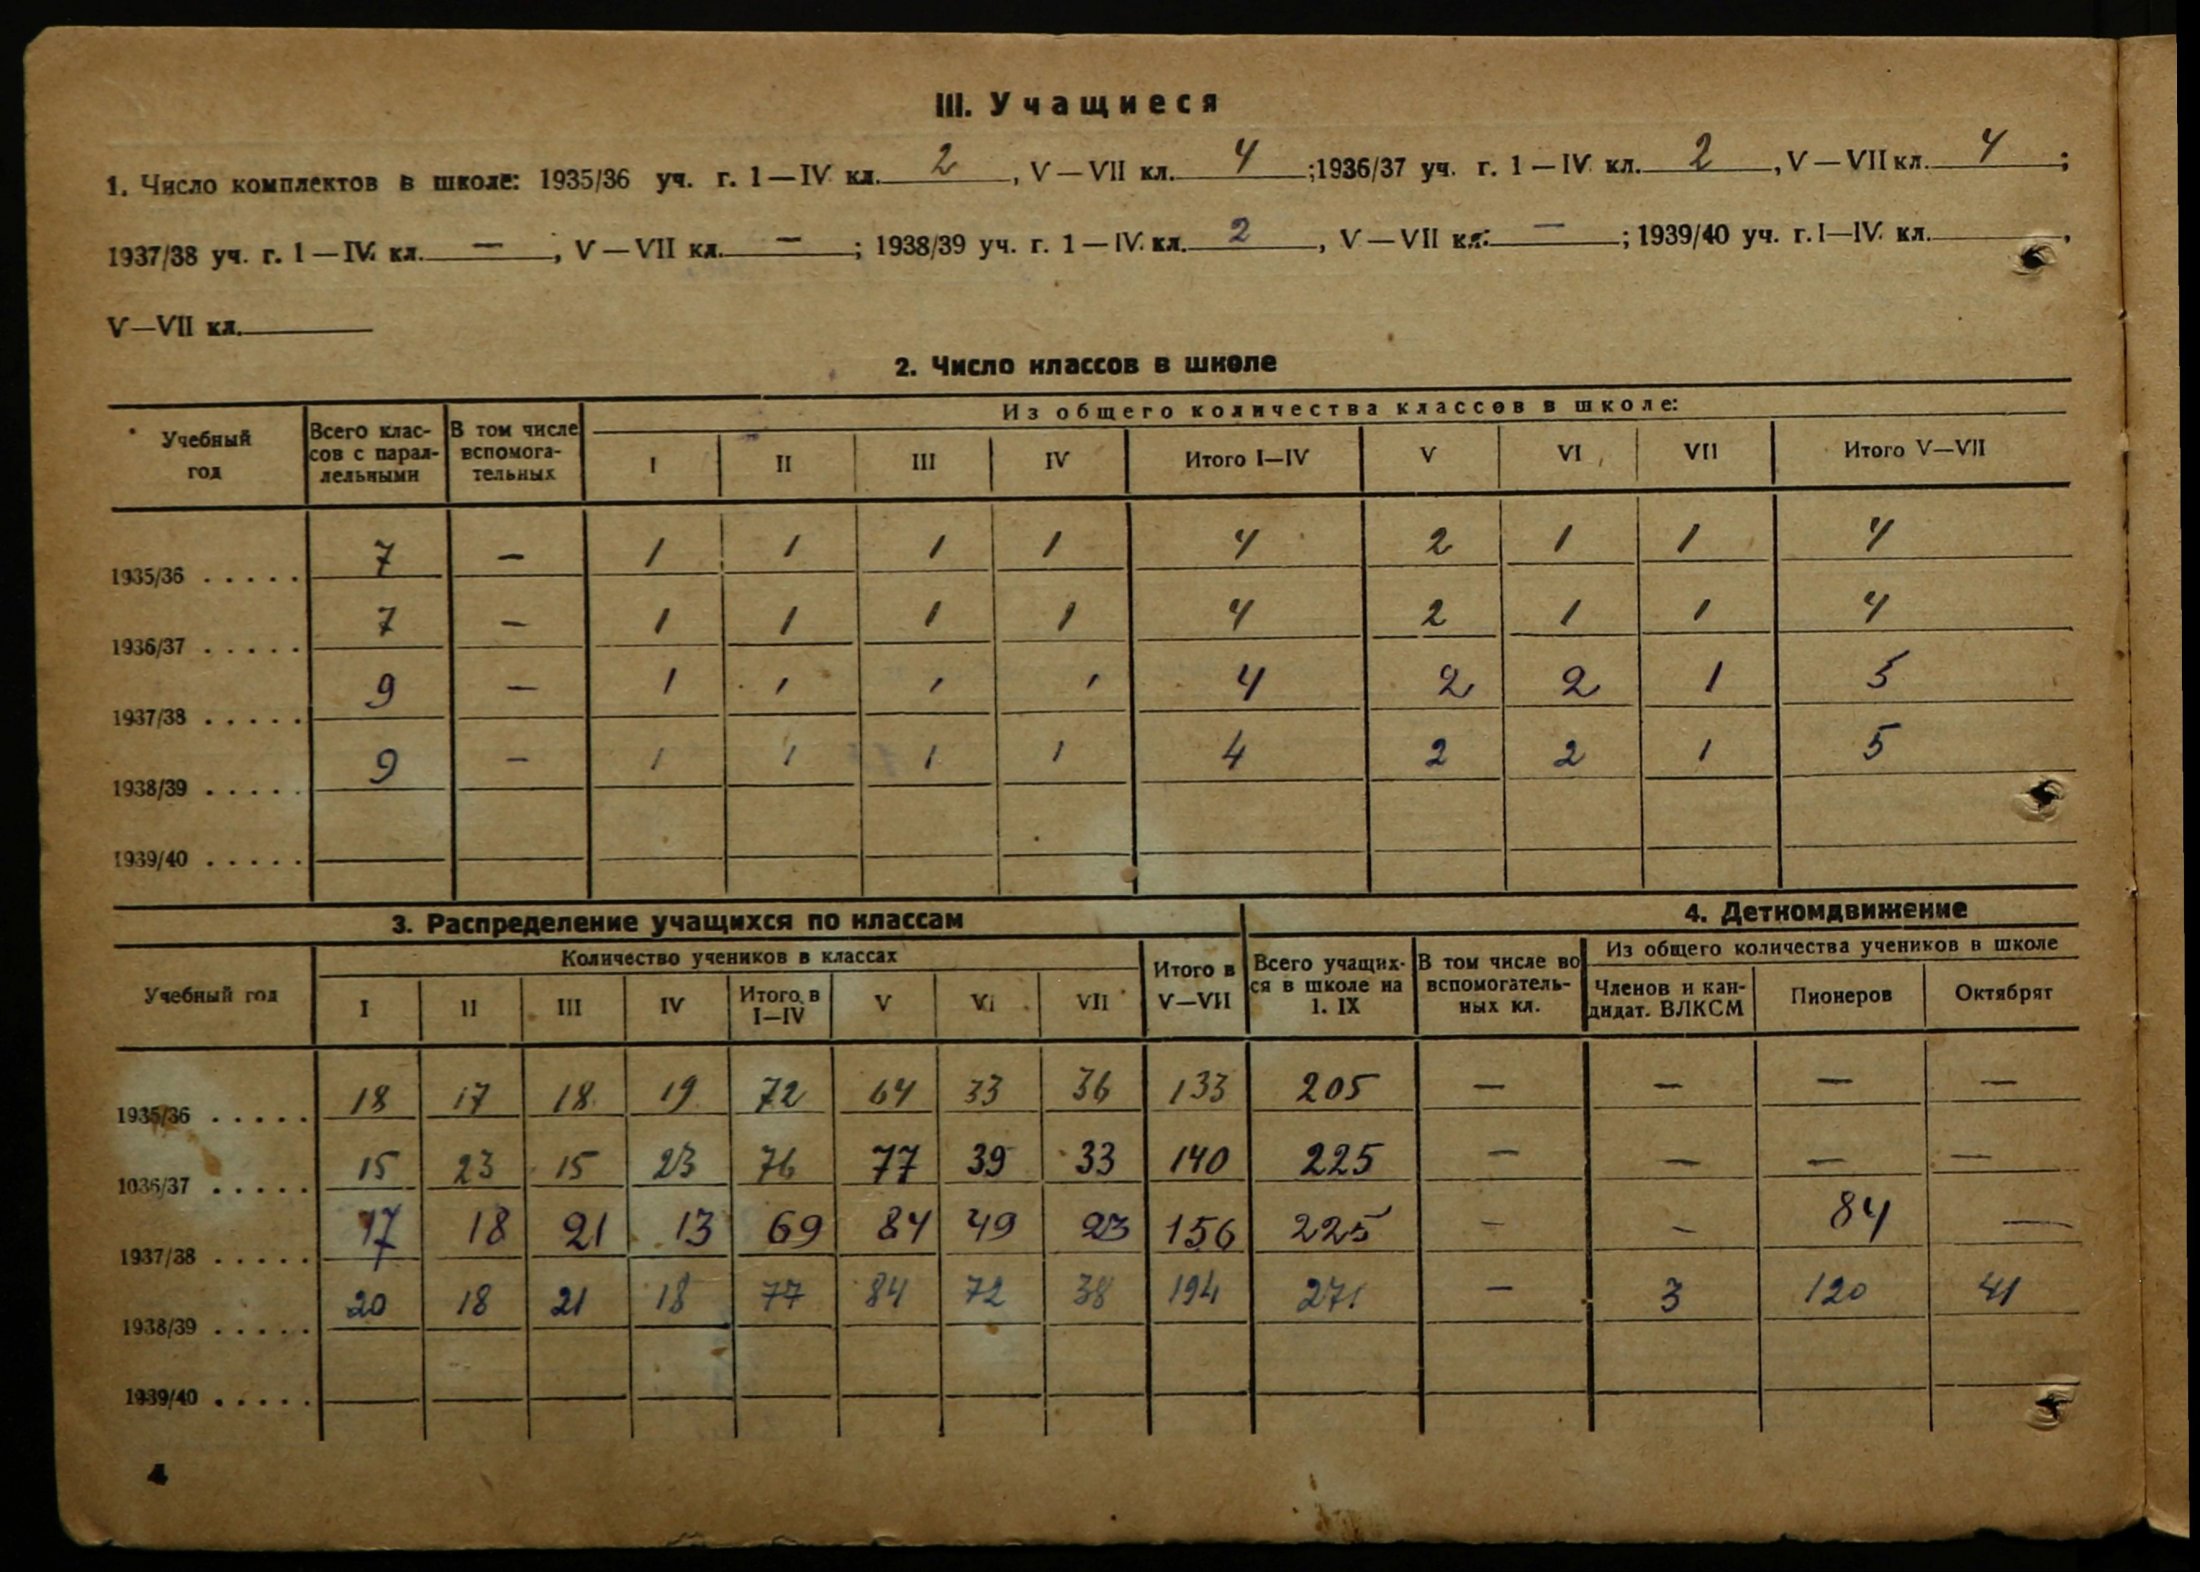 III. Учащиеся
1. Число комплектов в школе: 1935/36 уч. г. 1—IV кл. 2, V—VII кл. 4; 1936/37 уч. г. 1—IV кл. 2, V—VII кл. 4;
1937/38 уч. г. 1—IV кл. —, V—VII кл. —; 1938/39 уч. г. 1—IV кл. 2, V—VII кл. —; 1939/40 уч. г. I—IV кл.
V—VII кл.
2. Число классов в школе
Учебный год Всего классов с параллельными В том числе вспомогательных Из общего количества классов в школе:
I II III IV Итого I—IV V VI VII Итого V—VII
1935/36 . . . . . 7 — 1 1 1 1 4 2 1 1 4
1936/37 . . . . . 7 — 1 1 1 1 4 2 1 1 4
1937/38 . . . . . 9 — 1 1 1 1 4 2 2 1 5
1938/39 . . . . . 9 — 1 1 1 1 4 2 2 1 5
1939/40 . . . . .
3. Распределение учащихся по классам 4. Деткомдвижение
Учебный год Количество учеников в классах Итого в V—VII Всего учащихся в школе на 1. IX В том числе во вспомогательных кл. Из общего количества учеников в школе
I II III IV Итого в I—IV V VI VII Членов и кандидат. ВЛКСМ Пионеров Октябрят
1935/36 . . . . . 18 17 18 19 72 64 33 36 133 205 — — — —
1036/37 . . . . . 15 23 15 23 76 77 39 33 140 225 — — — —
1937/38 . . . . . 17 18 21 13 69 84 49 23 156 225 — — 84 —
1938/39 . . . . . 20 18 21 18 77 84 72 38 194 271 — 3 120 41
1939/40 . . . . .
4